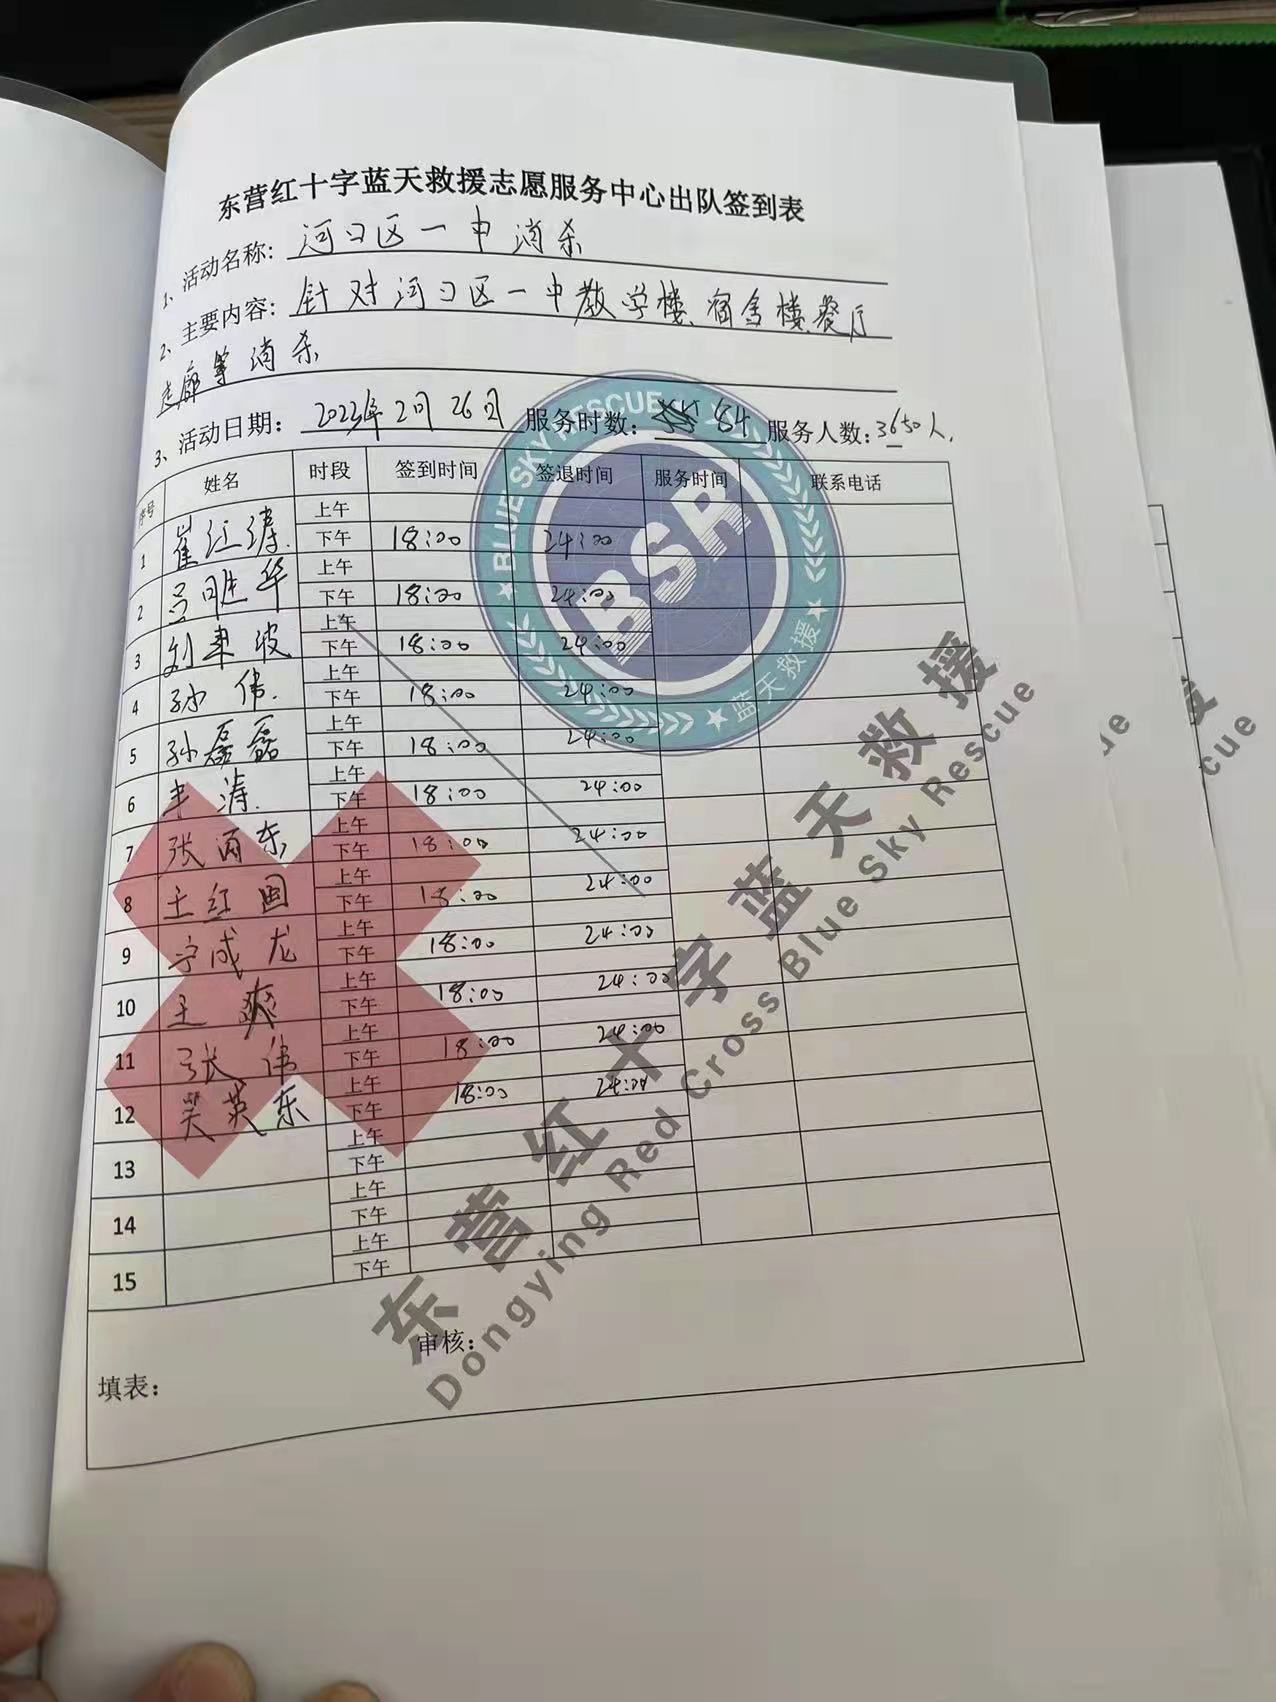 东营红十字蓝天救援志愿服务中心出队签到表
1、活动名称: 河口区一中消杀
2、主要内容: 针对河口区一中教学楼、宿舍楼、餐厅
走廊等消杀
3、活动日期: 2023年2月26日 服务时数: 84 服务人数: 3650人.
序号 姓名 时段 签到时间 签退时间 服务时间 联系电话
1 崔江涛 上午
下午 18:00 24:00
2 上午
下午 18:00 24:00
3 刘東波 上午
下午 18:00 24:00
4 孙伟 上午
下午 18:00 24:00
5 孙磊磊 上午
下午 18:00 24:00
6 涛 上午
下午 18:00 24:00
7 张丙东 上午
下午 18:00 24:00
8 王红国 上午
下午 18:00 24:00
9 宁成龙 上午
下午 18:00 24:00
10 王爽 上午
下午 18:00 24:00
11 张伟 上午
下午 18:00 24:00
12 英东 上午
下午 18:00 24:00
13 上午
下午
14 上午
下午
15 上午
下午
填表: 审核:
BLUE SKY RESCUE
BSR
蓝天救援
东营红十字蓝天救援
Dongying Red Cross Blue Sky Rescue
援
ue
cue